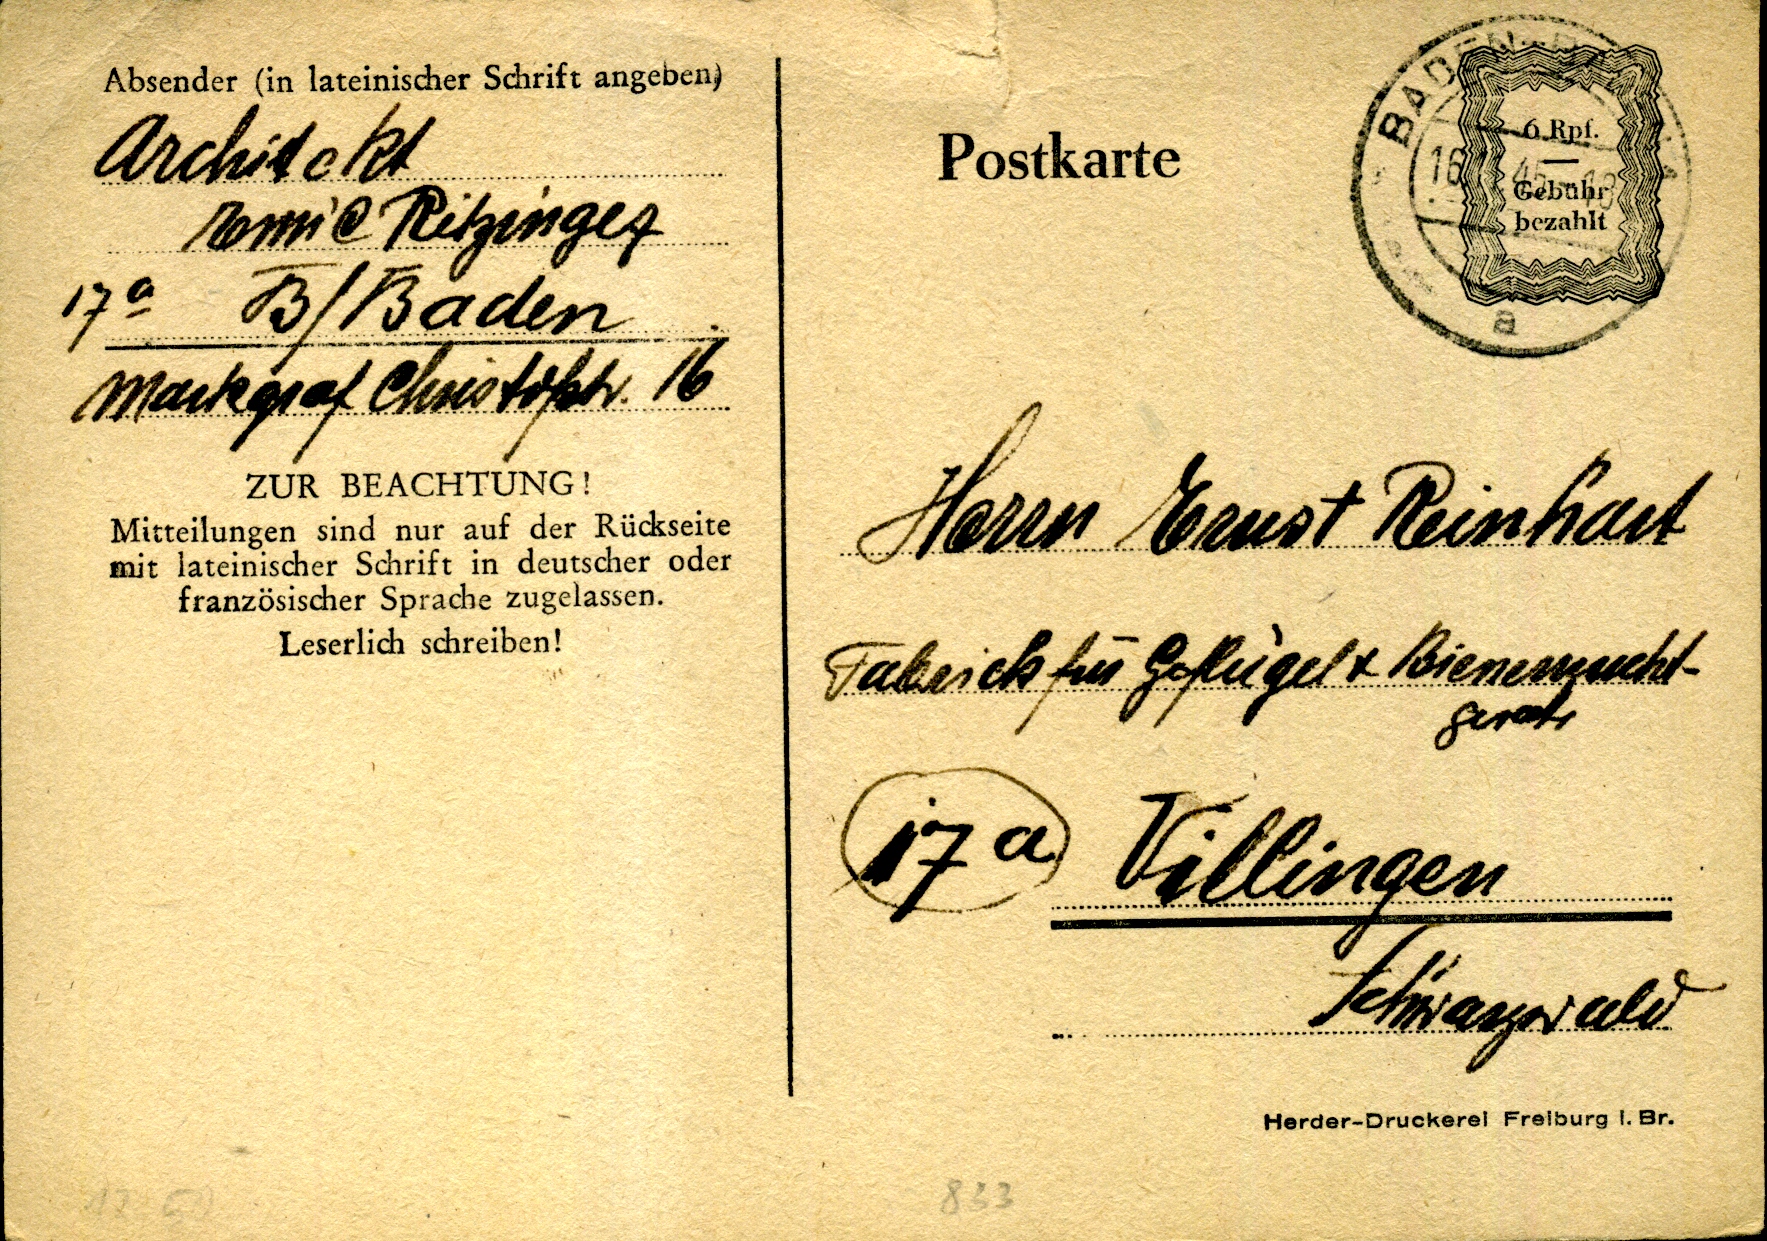 Absender (in lateinischer Schrift angeben)
Architekt
Emil Ritzinger
17a B/Baden
Markgraf Christofstr. 16
ZUR BEACHTUNG!
Mitteilungen sind nur auf der Rückseite
mit lateinischer Schrift in deutscher oder
französischer Sprache zugelassen.
Leserlich schreiben!
Postkarte
BADEN-BA
16 45-18
a
6 Rpf.
Gebühr
bezahlt
Herrn Ernst Reinhart
Fabrick für Geflügel & Bienenzucht-
geräte
17a Villingen
Schwarzwald
Herder-Druckerei Freiburg i. Br.
833